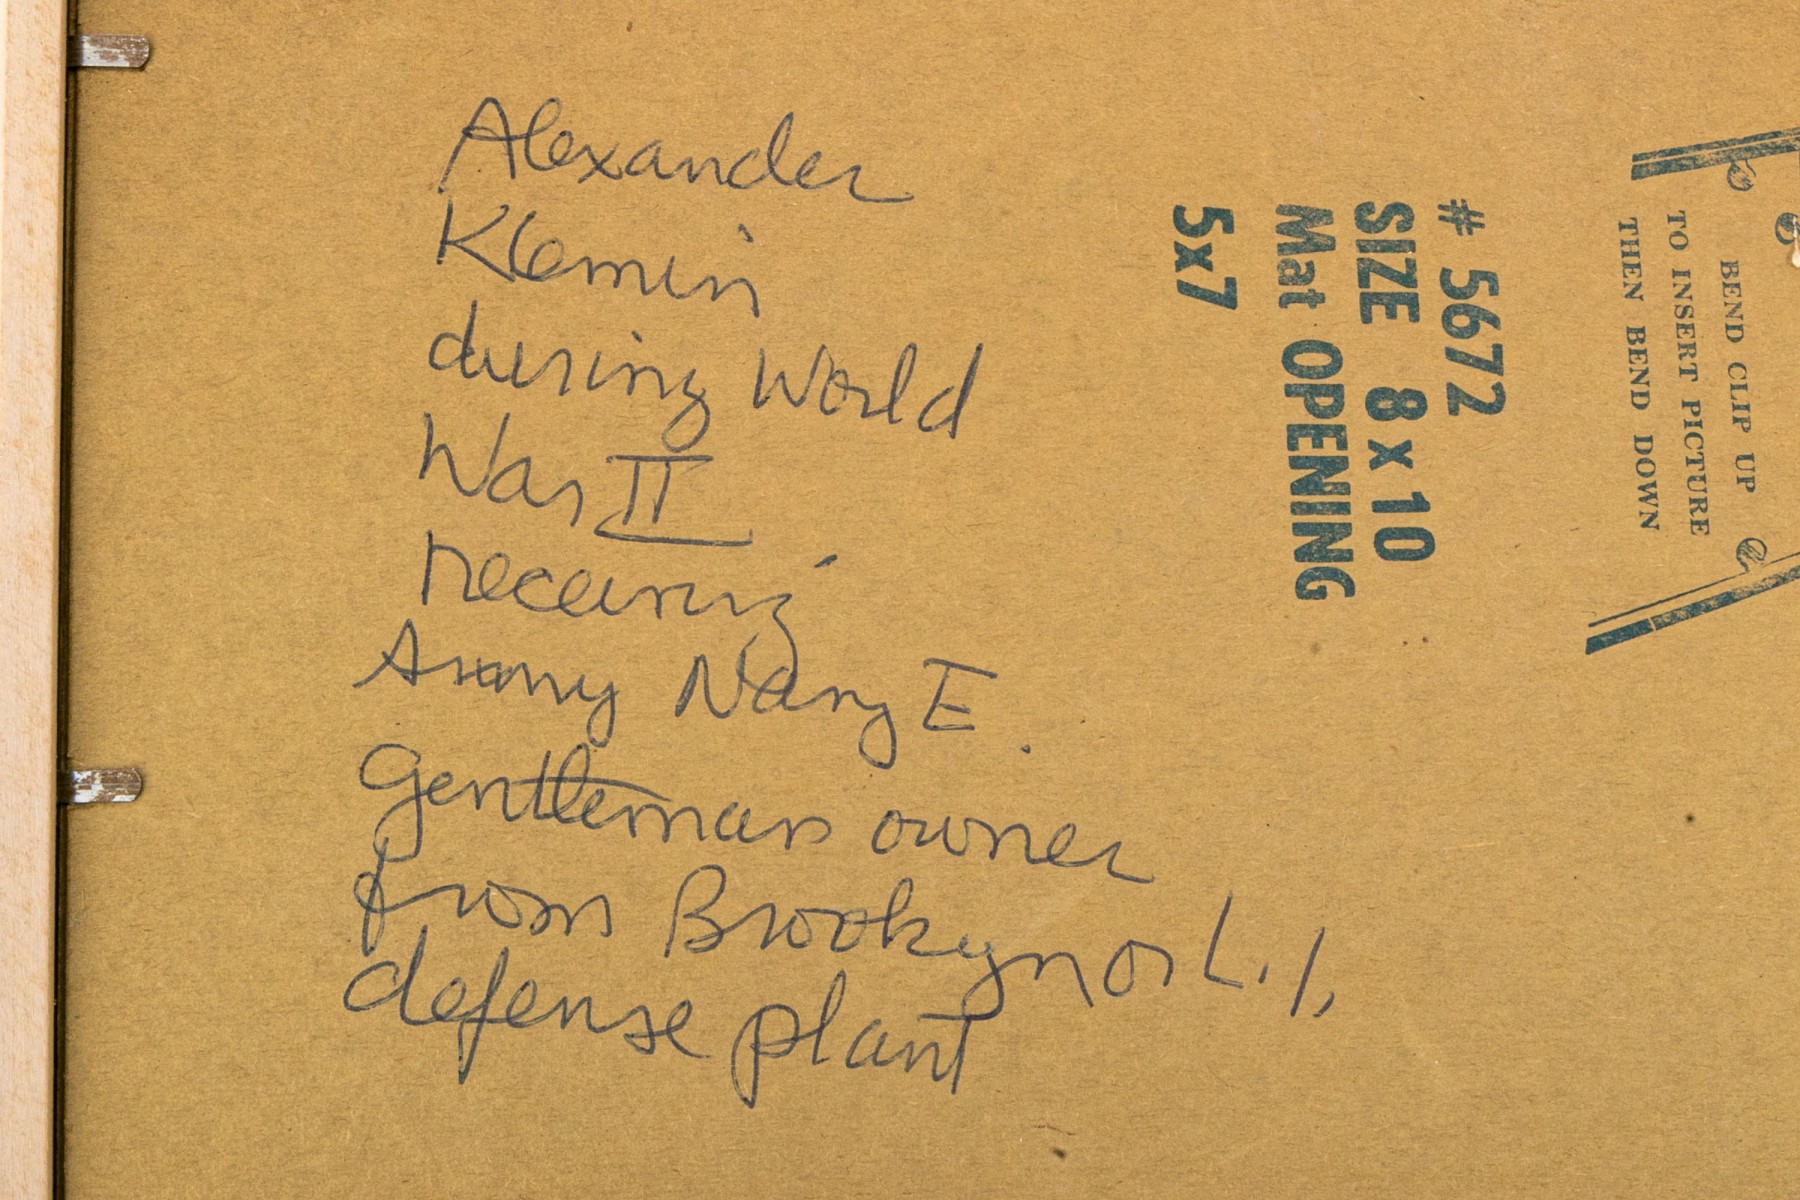 Alexander
Klemin
during World
War II
receiving
Army Navy E.
Gentleman owner
from Brookyn or L.I.
defense plant
# 5672
SIZE 8 x 10
Mat OPENING
5x7
BEND CLIP UP
TO INSERT PICTURE
THEN BEND DOWN